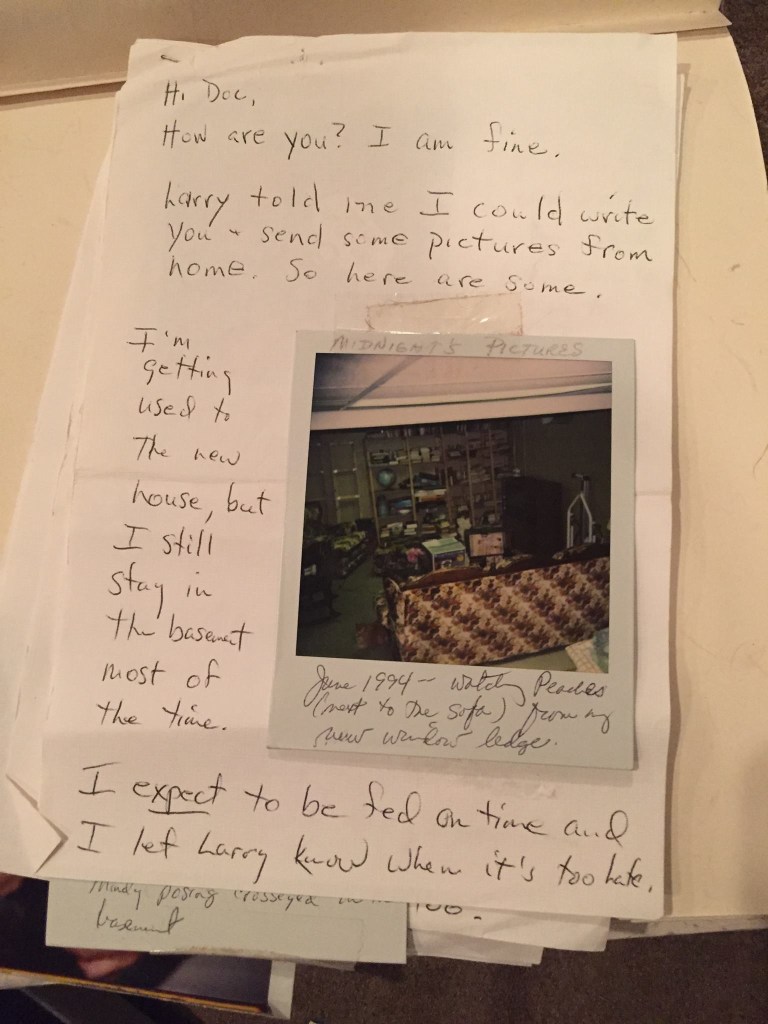 Hi Doc,
How are you? I am fine.
Larry told me I could write
you - send some pictures from
home. So here are some.
I'm
getting
used to
the new
house, but
I still
stay in
the basement
most of
the time.
MIDNIGHT'S PICTURES
June 1994 - watching Peaches
(next to the sofa) from my
new window ledge.
I expect to be fed on time and
I let Larry know when it's too late.
Mindy posing crosseyed
basement